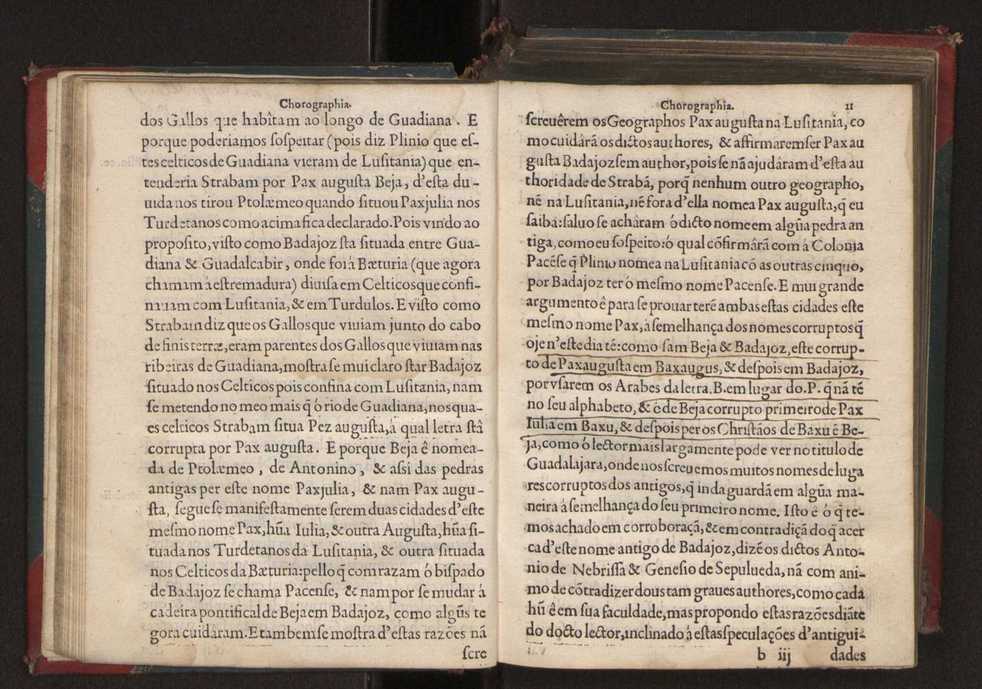 Chorographia.
dos Gallos que habitam ao longo de Guadiana. E
porque poderiamos sospeitar (pois diz Plinio que es-
tes celticos de Guadiana vieram de Lusitania) que en-
tenderia Strabam por Pax augusta Beja, d'esta du-
uida nos tirou Ptolæmeo quando situou Paxjulia nos
Turdetanos como acima fica declarado. Pois vindo ao
proposito, visto como Badajoz sta situada entre Gua-
diana & Guadalcabir, onde foi á Bæturia (que agora
chamam áestremadura) diuisa em Celticos que confi-
nauam com Lusitania, & em Turdulos. E visto como
Strabam diz que os Gallos que viuiam junto do cabo
de finis terræ, eram parentes dos Gallos que viuiam nas
ribeiras de Guadiana, mostra se mui claro star Badajoz
situado nos Celticos pois confina com Lusitania, nam
se metendo no meo mais q̃ ó rio de Guadiana, nos qua-
es celticos Strabam situa Pez augusta, á qual letra stá
corrupta por Pax augusta. E porque Beja ê nomea-
da de Ptolæmeo, de Antonino, & assi das pedras
antigas per este nome Paxjulia, & nam Pax augu-
sta, segue se manifestamente serem duas cidades d'este
mesmo nome Pax, hũa Iulia, & outra Augusta, hũa si-
tuada nos Turdetanos da Lusitania, & outra situada
nos Celticos da Bæturia: pello q̃ com razam ó bispado
de Badajoz se chama Pacense, & nam por se mudar á
cadeira pontifical de Beja em Badajoz, como algũs te
gora cuidáram. E tambem se mostra d'estas razões nã
scre
Chorographia. 11
screuêrem os Geographos Pax augusta na Lusitania, co
mo cuidárã os dictos authores, & affirmarem ser Pax au
gusta Badajoz sem author, pois se nã ajudáram d'esta au
thoridade de Strabã, porq̃ nenhum outro geographo,
nẽ na Lusitania, nẽ fora d'ella nomea Pax augusta, q̃ eu
saiba: saluo se acháram ó dicto nome em algũa pedra an
tiga, como eu sospeito: ó qual cõfirmárã com á Colonia
Pacẽse q̃ Plinio nomea na Lusitania cõ as outras cinquo,
por Badajoz ter ó mesmo nome Pacense. E mui grande
argumento ê para se prouar terẽ ambas estas cidades este
mesmo nome Pax, á semelhança dos nomes corruptos q̃
oje n'este dia tẽ: como sam Beja & Badajoz, este corrup-
to de Paxaugusta em Baxaugus, & despois em Badajoz,
por vsarem os Arabes da letra. B. em lugar do. P. q̃ nã tẽ
no seu alphabeto, & ó de Beja corrupto primeiro de Pax
Iulia em Baxu, & despois per os Christãos de Baxu ẽ Be-
ja, como ó lector mais largamente pode ver no titulo de
Guadalajara, onde nos screuemos muitos nomes de luga
res corruptos dos antigos, q̃ inda guardã em algũa ma-
neira á semelhança do seu primeiro nome. Isto ê ó q̃ te-
mos achado em corroboraçã, & em contradiçã do q̃ acer
ca d'este nome antigo de Badajoz, dizẽ os dictos Anto-
nio de Nebrissa & Genesio de Sepulueda, nã com ani-
mo de cõtradizer dous tam graues authores, como cada
hũ ê em sua faculdade, mas propondo estas razões diãte
do docto lector, inclinado á estas speculações d'antigui-
b iij dades